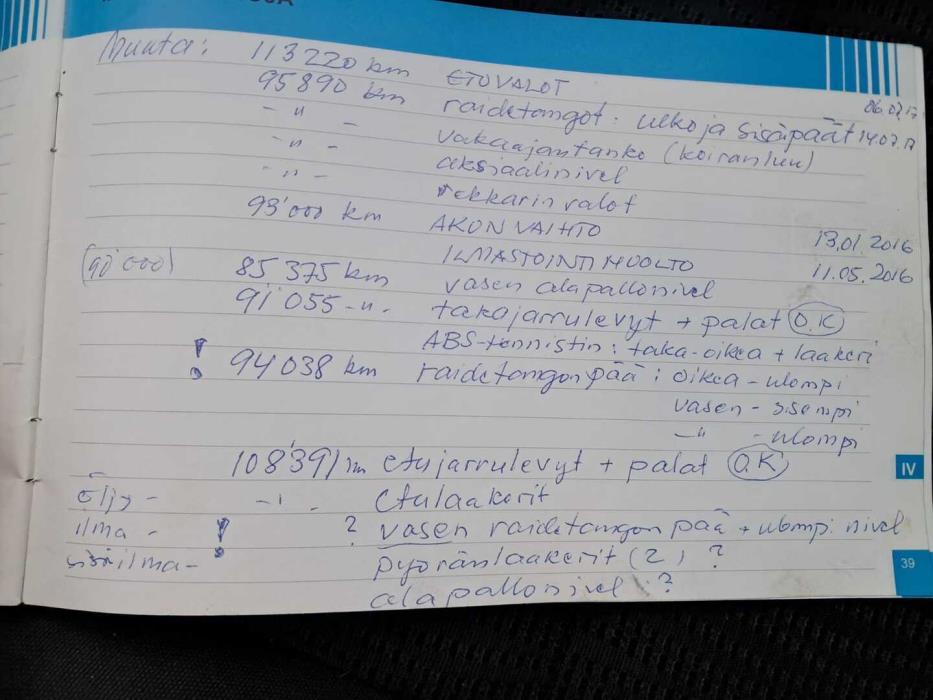 Muuta: 113220 km ETUVALOT
95890 km raidetangot: ulko ja sisäpäät 14.07.17
- " - vakaajantanko (koiranluu)
- " - aksiaalinivel
- " - rekkarin valot
93'000 km AKUN VAIHTO 13.01.2016
ILMASTOINTIHUOLTO 11.05.2016
(90'000) 85375 km vasen alapallonivel
91'055 -"- takajarrulevyt + palat O.K
ABS-tunnistin: taka-oikea + laakeri
! 94038 km raidetangon pää: oikea - ulompi
vasen - sisempi
-"- - ulompi
108'391 km etujarrulevyt + palat O.K
IV
Öljy - -"- etulaakerit
ilma - ! ? vasen raidetangon pää + ulompi nivel
sisäilma - pyöränlaakerit (2) ?
39
alapallonivel ?